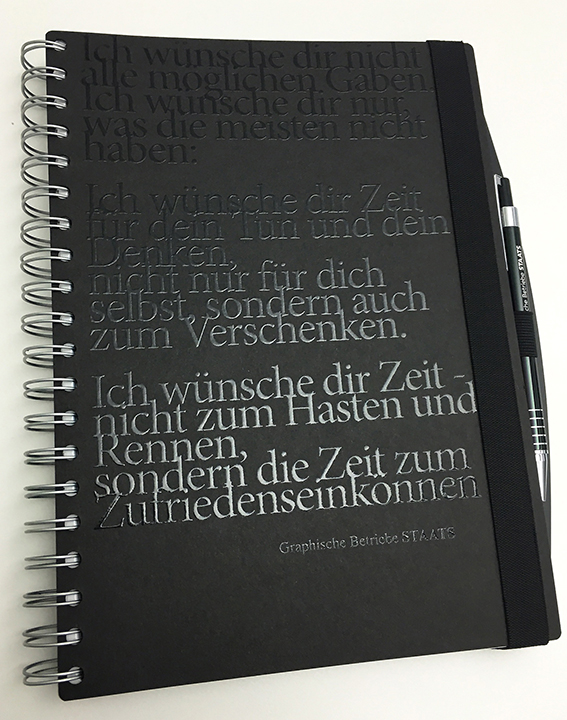 Ich wünsche dir nicht
alle möglichen Gaben.
Ich wünsche dir nur,
was die meisten nicht
haben:
Ich wünsche dir Zeit
für dein Tun und dein
Denken,
nicht nur für dich
selbst, sondern auch
zum Verschenken.
Ich wünsche dir Zeit -
nicht zum Hasten und
Rennen,
sondern die Zeit zum
Zufriedenseinkönnen
Graphische Betriebe STAATS
che Betriebe STAATS